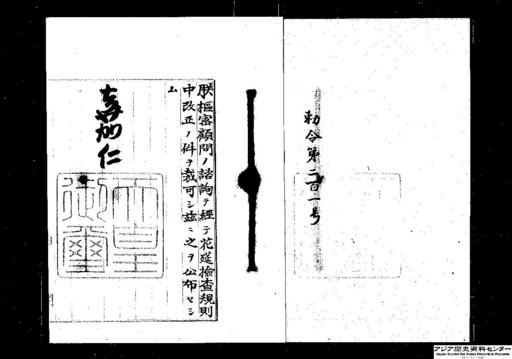 勅令第二百一号
朕枢密顧問ノ諮詢ヲ経テ花莚検査規則
中改正ノ件ヲ裁可シ茲ニ之ヲ公布セシ
ム
嘉仁
天皇
御璽
アジア歴史資料センター
Japan Center for Asian Historical Records